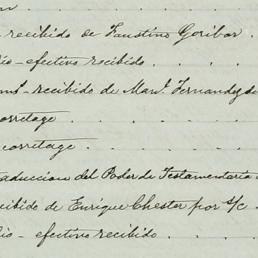 recibido de Faustino Goribar
efectivo recibido
recibido de Manl. Fernandez de
corretage
corretage
traduccion del Poder de Testamentaria
recibido de Enrique Chester por s/c
efectivo recibido